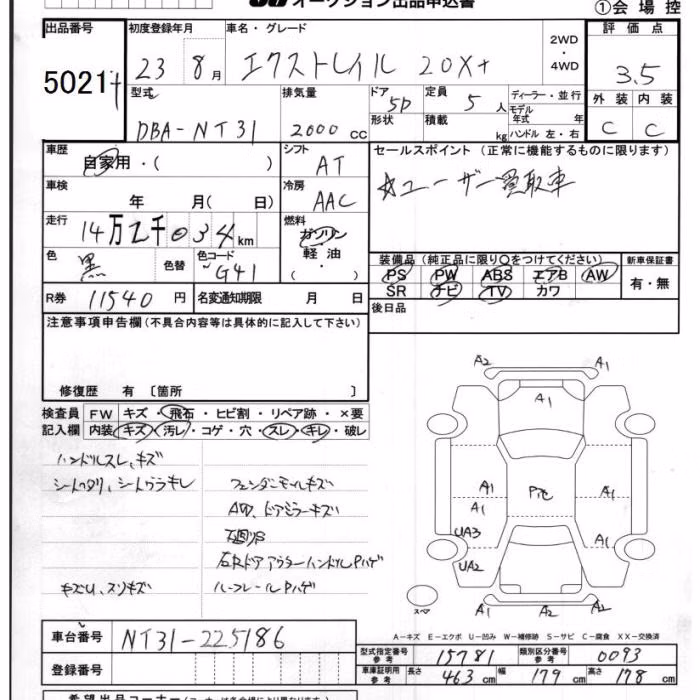 オークション出品申込書
①会場控
出品番号 初度登録年月 車名・グレード 評価点
5021 23 8月 エクストレイル 20X+ 2WD・4WD 3.5
型式 排気量 ドア 定員 ディーラー・並行
DBA-NT31 2000cc 5D 5人 モデル年式 年
形状 積載 kg ハンドル 左・右
外装 内装
C C
車歴 シフト セールスポイント (正常に機能するものに限ります)
自家用・( ) AT ☆ユーザー買取車
車検 冷房
年 月( 日) AAC
走行 燃料
14万2千034km ガソリン
軽油
・( )
色 色替 色コード
黒 G41
装備品(純正品に限り○をつけてください) 新車保証書
PS PW ABS エアB AW 有・無
SR ナビ TV カワ
R券 11540円 名変通知期限 月 日
後日品
注意事項申告欄(不具合内容等は具体的に記入して下さい)
修復歴 有 〔箇所 〕
検査員 FW キズ・飛石・ヒビ割・リペア跡・×要
記入欄 内装 キズ・汚レ・コゲ・穴・スレ・キレ・破レ
ハンドルスレ、キズ
シートヘタリ、シートウラキレ フェンダーモールキズ
AW、ドアミラーキズ
右Rドア アウターハンドルPハゲ
キズU、スリキズ ルーフレールPハゲ
A2 A1
A1
A1 A1 PTC A1
A1
UA3 A1
UA2
スペア A1 A2 A1
A-キズ E-エクボ U-凹み W-補修跡 S-サビ C-腐食 XX-交換済
車台番号 NT31-225186
型式指定番号 参考 15781 類別区分番号 参考 0093
登録番号
車庫証明用 参考 長さ 463cm 幅 179cm 高さ 178cm
希望出品コーナー